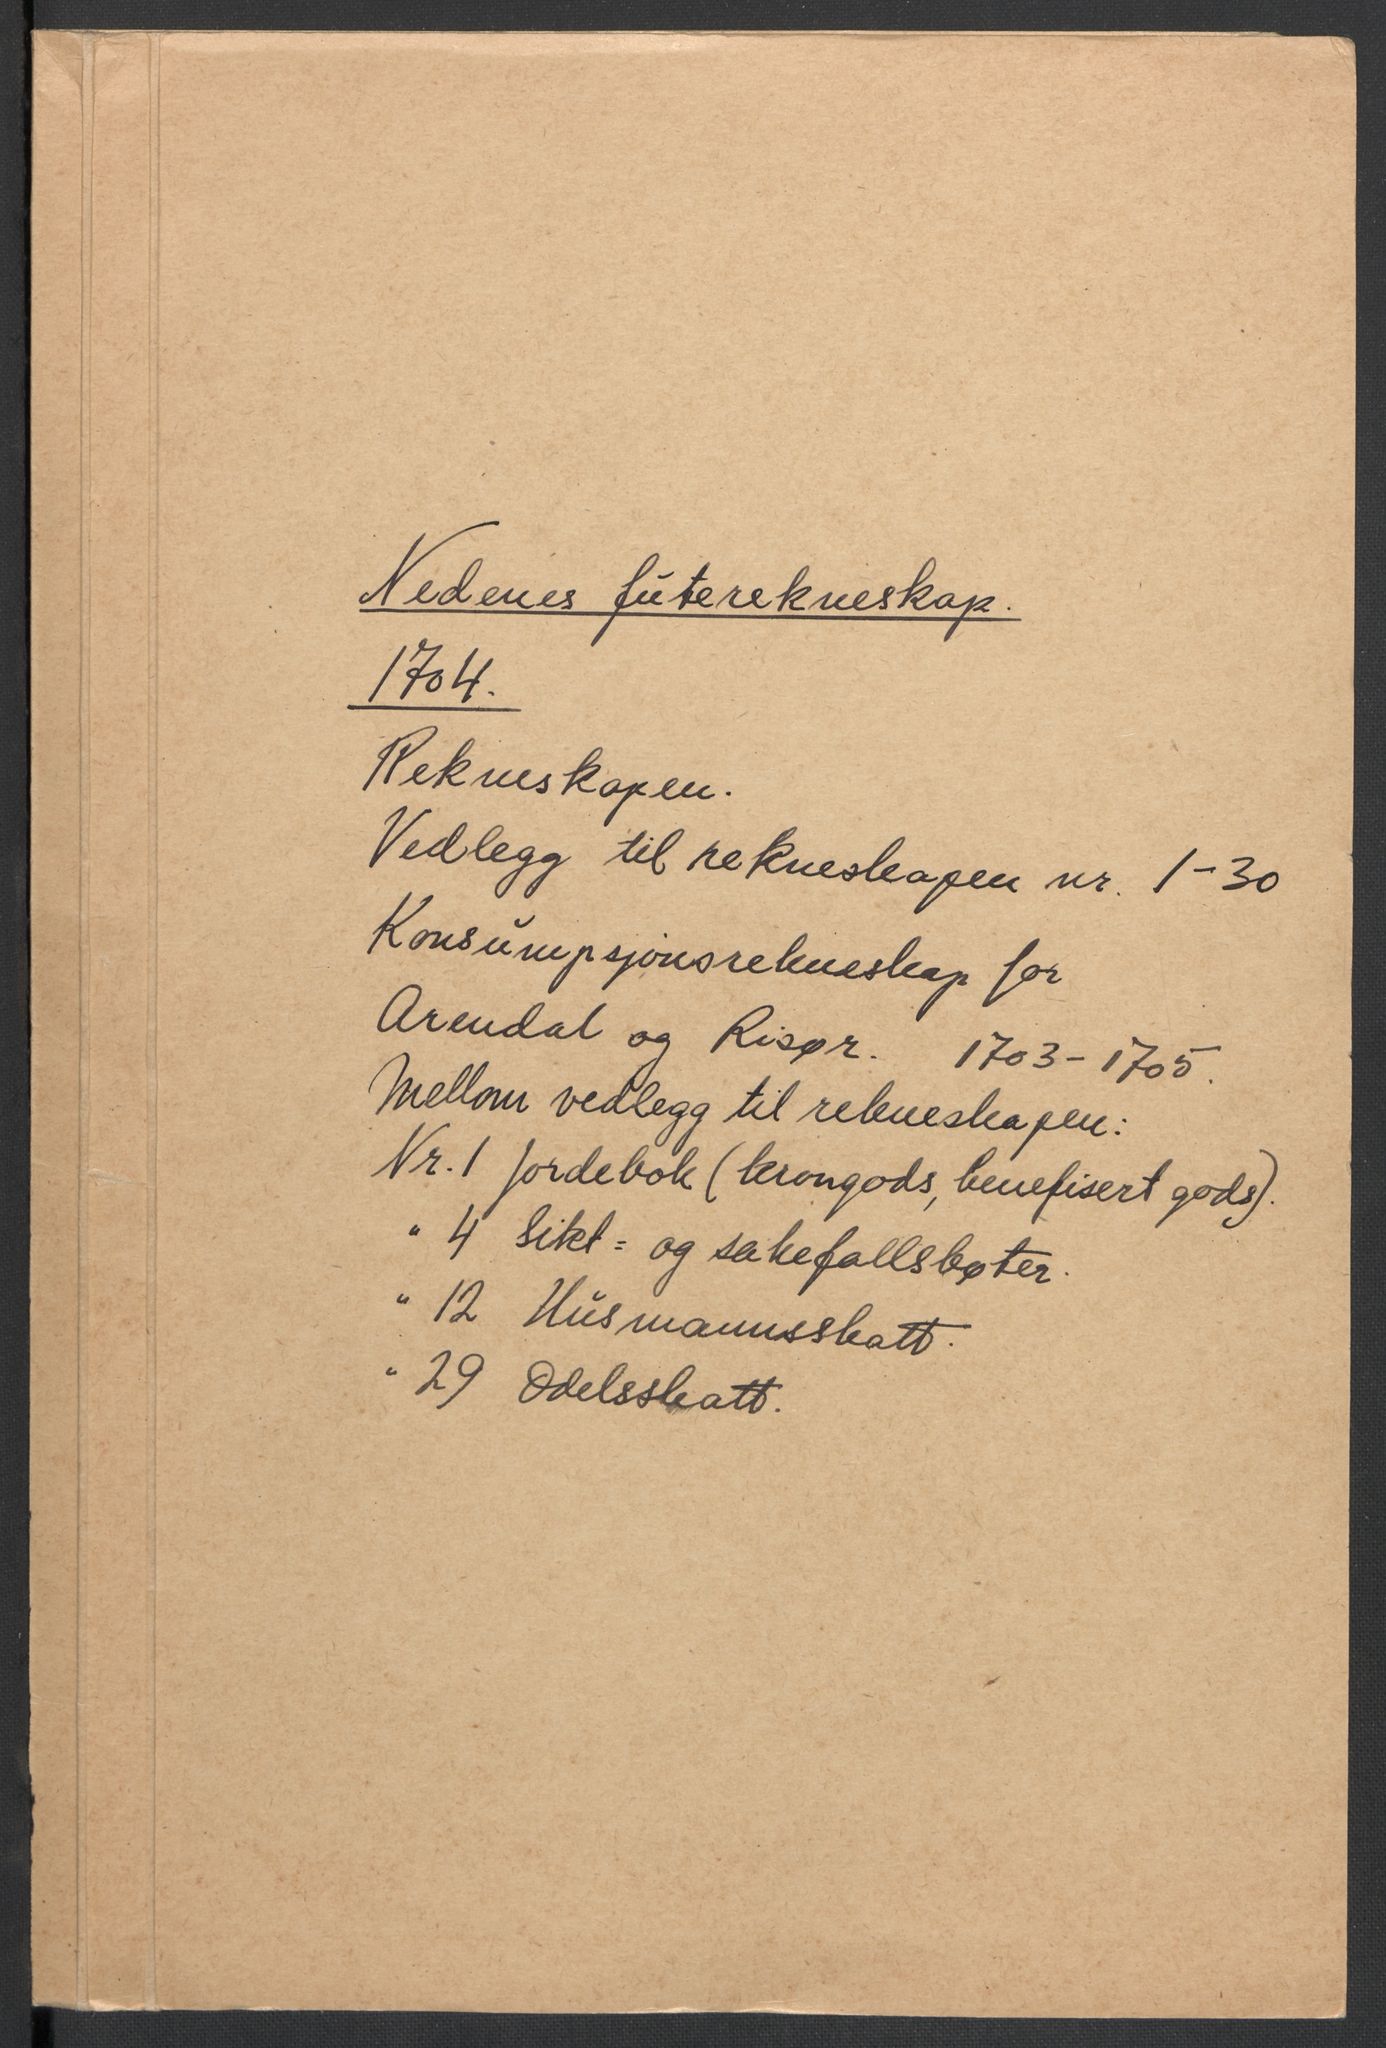 Nedenes futerekneskap.
1704.
Rekneskapen.
Vedlegg til rekneskapen nr. 1-30
Konsumpsjonsrekneskap for
Arendal og Risør. 1703-1705.
Mellom vedlegg til rekneskapen:
Nr. 1 Jordebok (krongods, benefisert gods).
" 4 Sikt= og sakefallsbøter.
" 12 Husmannsskatt.
" 29 Odelsskatt.